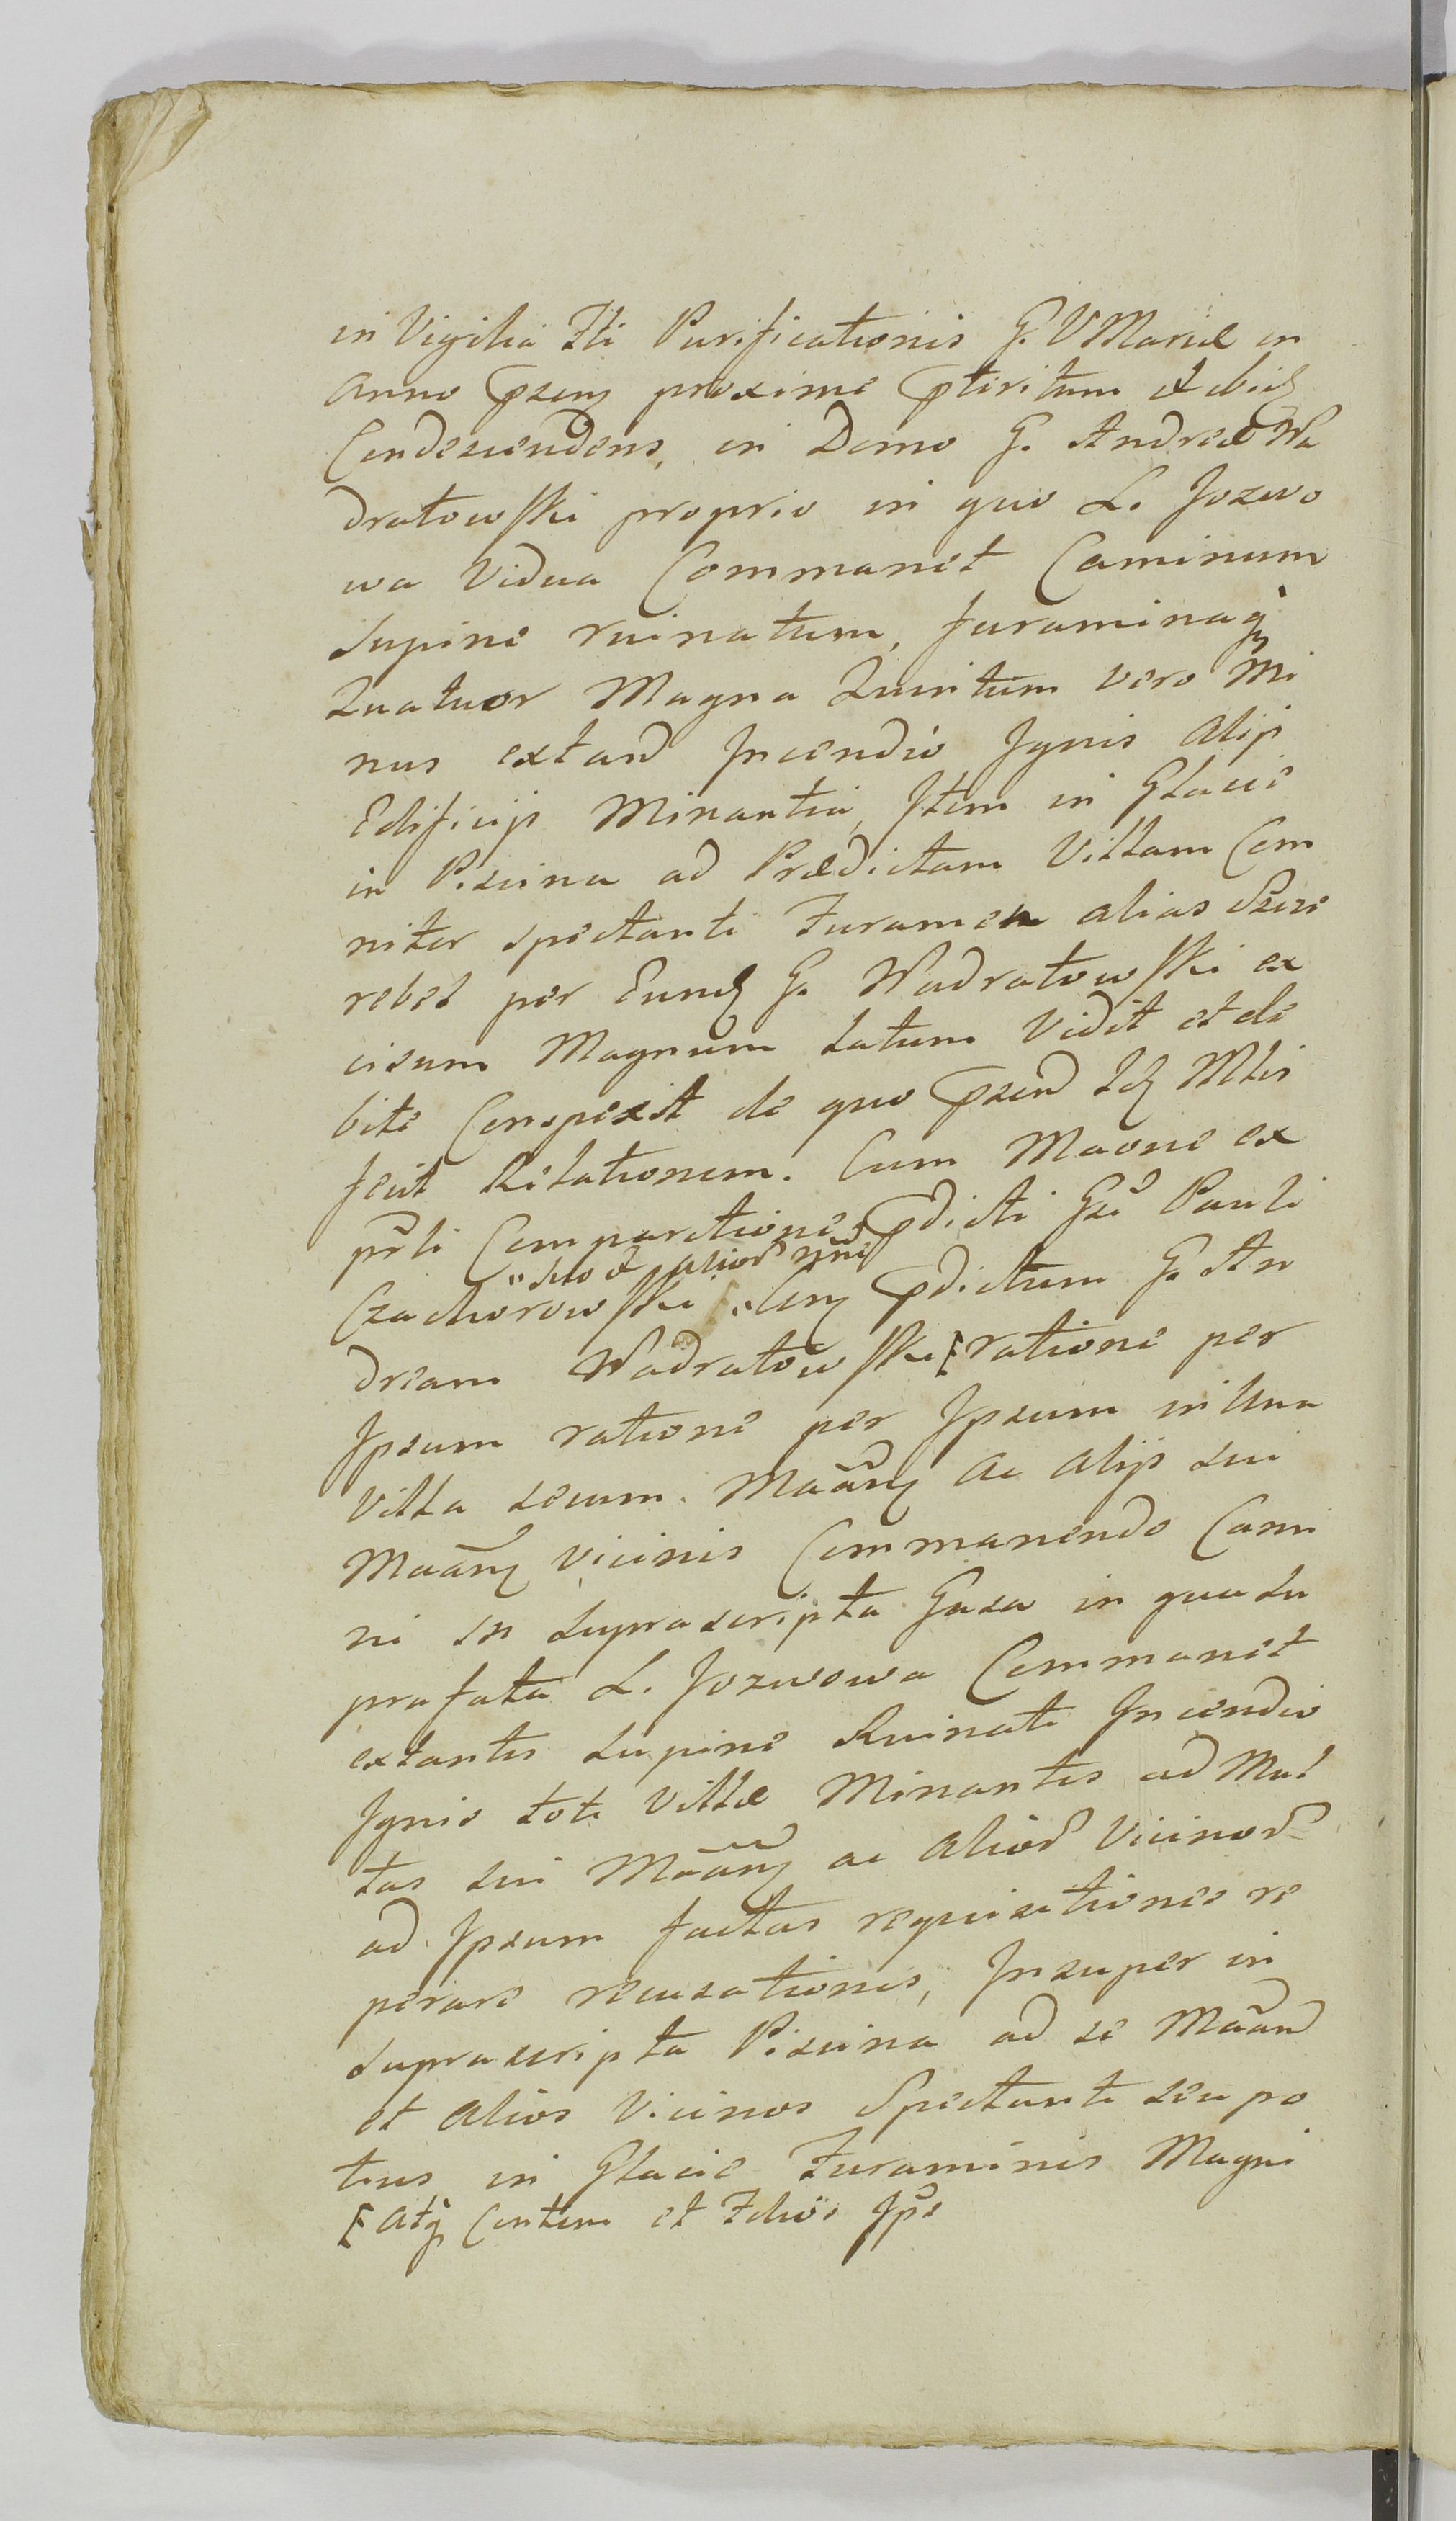 in Vigilia Fti Purificationis B. V Mariæ in
Anno pzenj proxime pteritum et ibid
Condescendens, in Domo G. Andreæ Wa
dratowski proprio in quo L. Jozwo
wa Vidua Commanet Caminum
supine ruinatum, foraminaq
Quatuor Magna Quintum vero Mi
nus extand Incendio Ignis Alijs
Edificijs Minantia, Item in Glacie
in Piscina ad Prædictam Villam Com
niter spectanti Furamen alias Prze
rebel per Eund G. Wadratowski ex
cisum Magnum Latum Vidit et de
bite Conspexit de quo pzend Id Mtis
fecit Relationem. Cum Maone ex
prti Comparitione pdicti Gsi Pauli
"suo & alior nne
Czachorowski "Cnj pdictum G. An
dream Wadratowski [ratione per
Ipsum ratione per Ipsum in Una
Villa secum. Maanj ac Alijs sui
Maanj Vicinis Commanendo Cami
ni in supra scripta Casa in qua su
prafata L. Jozwowa Commanet
extantis supine Ruinati Incendio
Ignis toti Villæ Minantis ad Mul
tas sui Maanj ac Alior Vicinor
ad Ipsum factas requisitiones re
perare recusationis, Insuper in
suprascripta Piscina ad se Maand
et Alios Vicinos Spectanti seu po
tius in Glacie Furaminis Magni
[Atq Contum et Fdios Ips